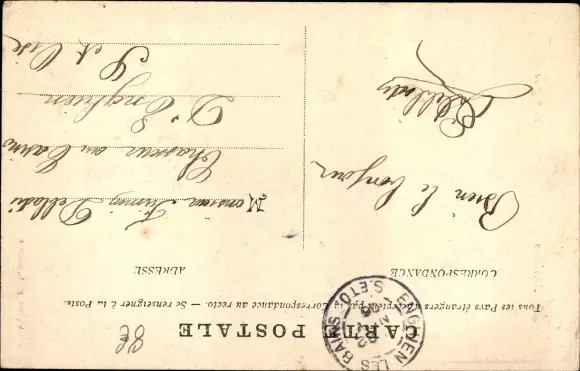 CARTE POSTALE
Tous les Pays étrangers n'acceptent pas la Correspondance au recto. — Se renseigner à la Poste.
CORRESPONDANCE
ADRESSE
Bien le bonjour
Monsieur Firmin
Chasseur au Casino
D'Enghien
S et Oise
ENGHIEN LES BAINS
S. ET O.